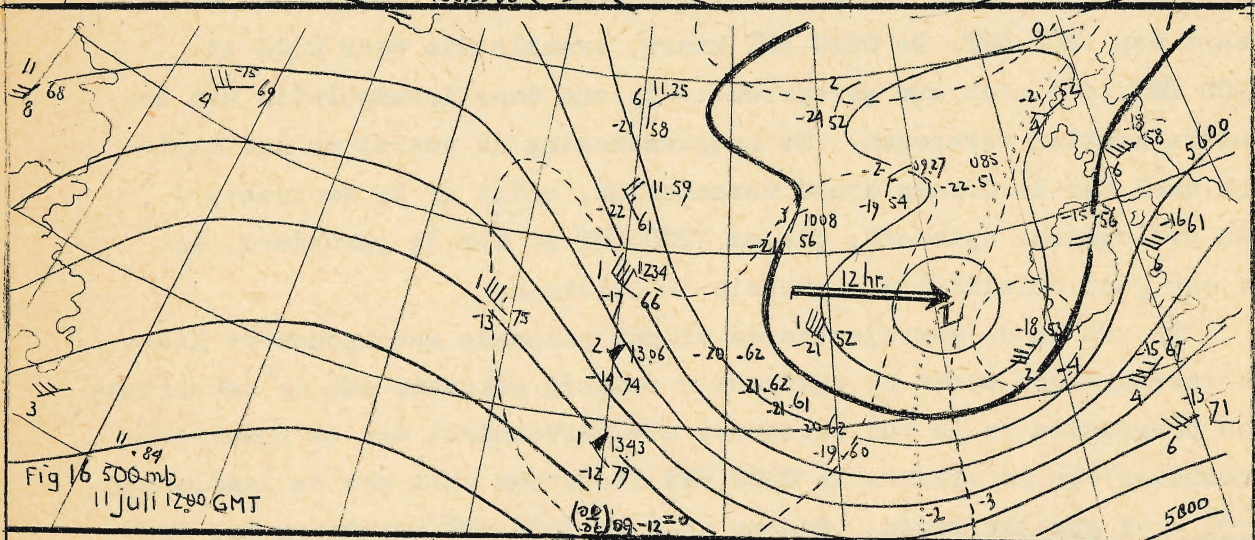 11
68
8
-15
4
69
6 11.25
-21 58
2
-24 52
0
-21 52
4
-18 58
6
5600
11.59
-22 61
2 0927
-19 54
085
-22.51
3 1008
-21 56
-15 56
-16 61
6
1 1234
-17 66
12 hr.
L
1
-13 75
1
21 52
-18 53
2
-4
2 1306
-14 74
-20 .62
-21 .62
-21 .61
-20 62
-19 60
-15 67
4
-13 71
6
3
1 1343
-12 79
11
.84
Fig 16 500mb
11 juli 1200 GMT
09-12=0
-2
-3
5800